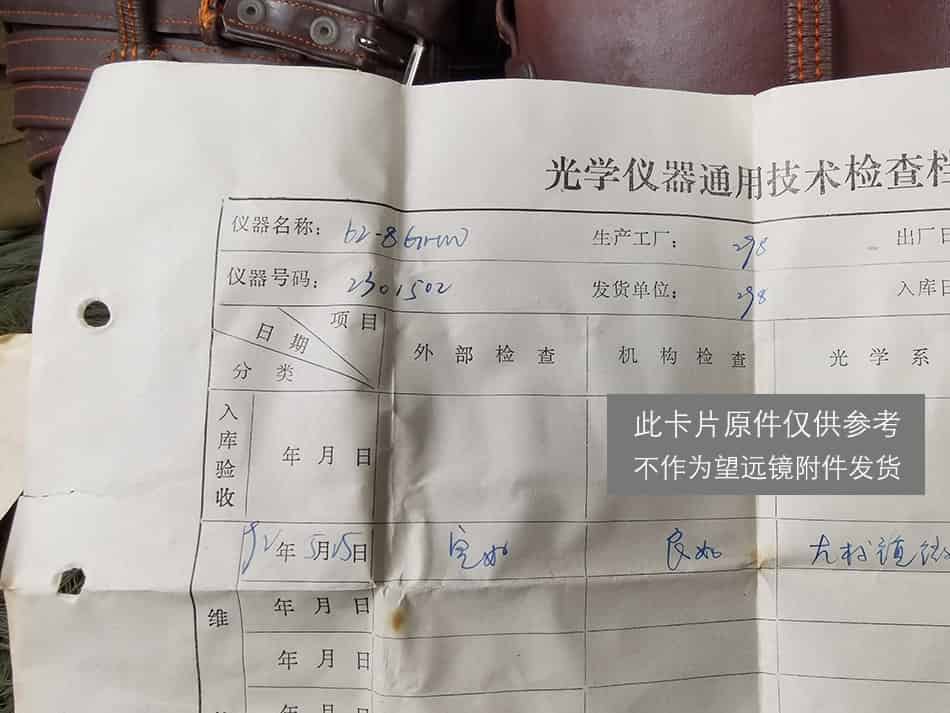 光学仪器通用技术检查档
仪器名称： 62-8 生产工厂： 298 出厂日
仪器号码： 2301502 发货单位： 298 入库日
项目
日期
分类
外部检查 机构检查 光学系
入库验收 年月日
此卡片原件仅供参考
不作为望远镜附件发货
92年5月15日 完好 良好
维 年月日
年月日
年月日